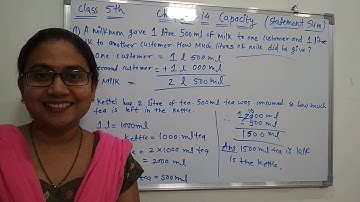 Class 5th Chapter 14 Capacity (Statement Sum)
Q) A milkman gave 1 litre 500 ml of milk to one customer and 1 litre
milk to another customer. How much litres of milk did he give?
one customer = 1 l 500 ml
second customer = + 1 l 000 ml
milk = 2 l 500 ml
Kettel has 2 litre of tea. 500 ml tea was consumed so how much
tea is left in the kettle.
1 l = 1000 ml
kettle = 1000 ml tea
= 2 x 1000 ml tea
= 2000 ml
tea = 500 ml
2000 ml
- 500 ml
1500 ml
Ans 1500 ml tea is left
is the kettle.